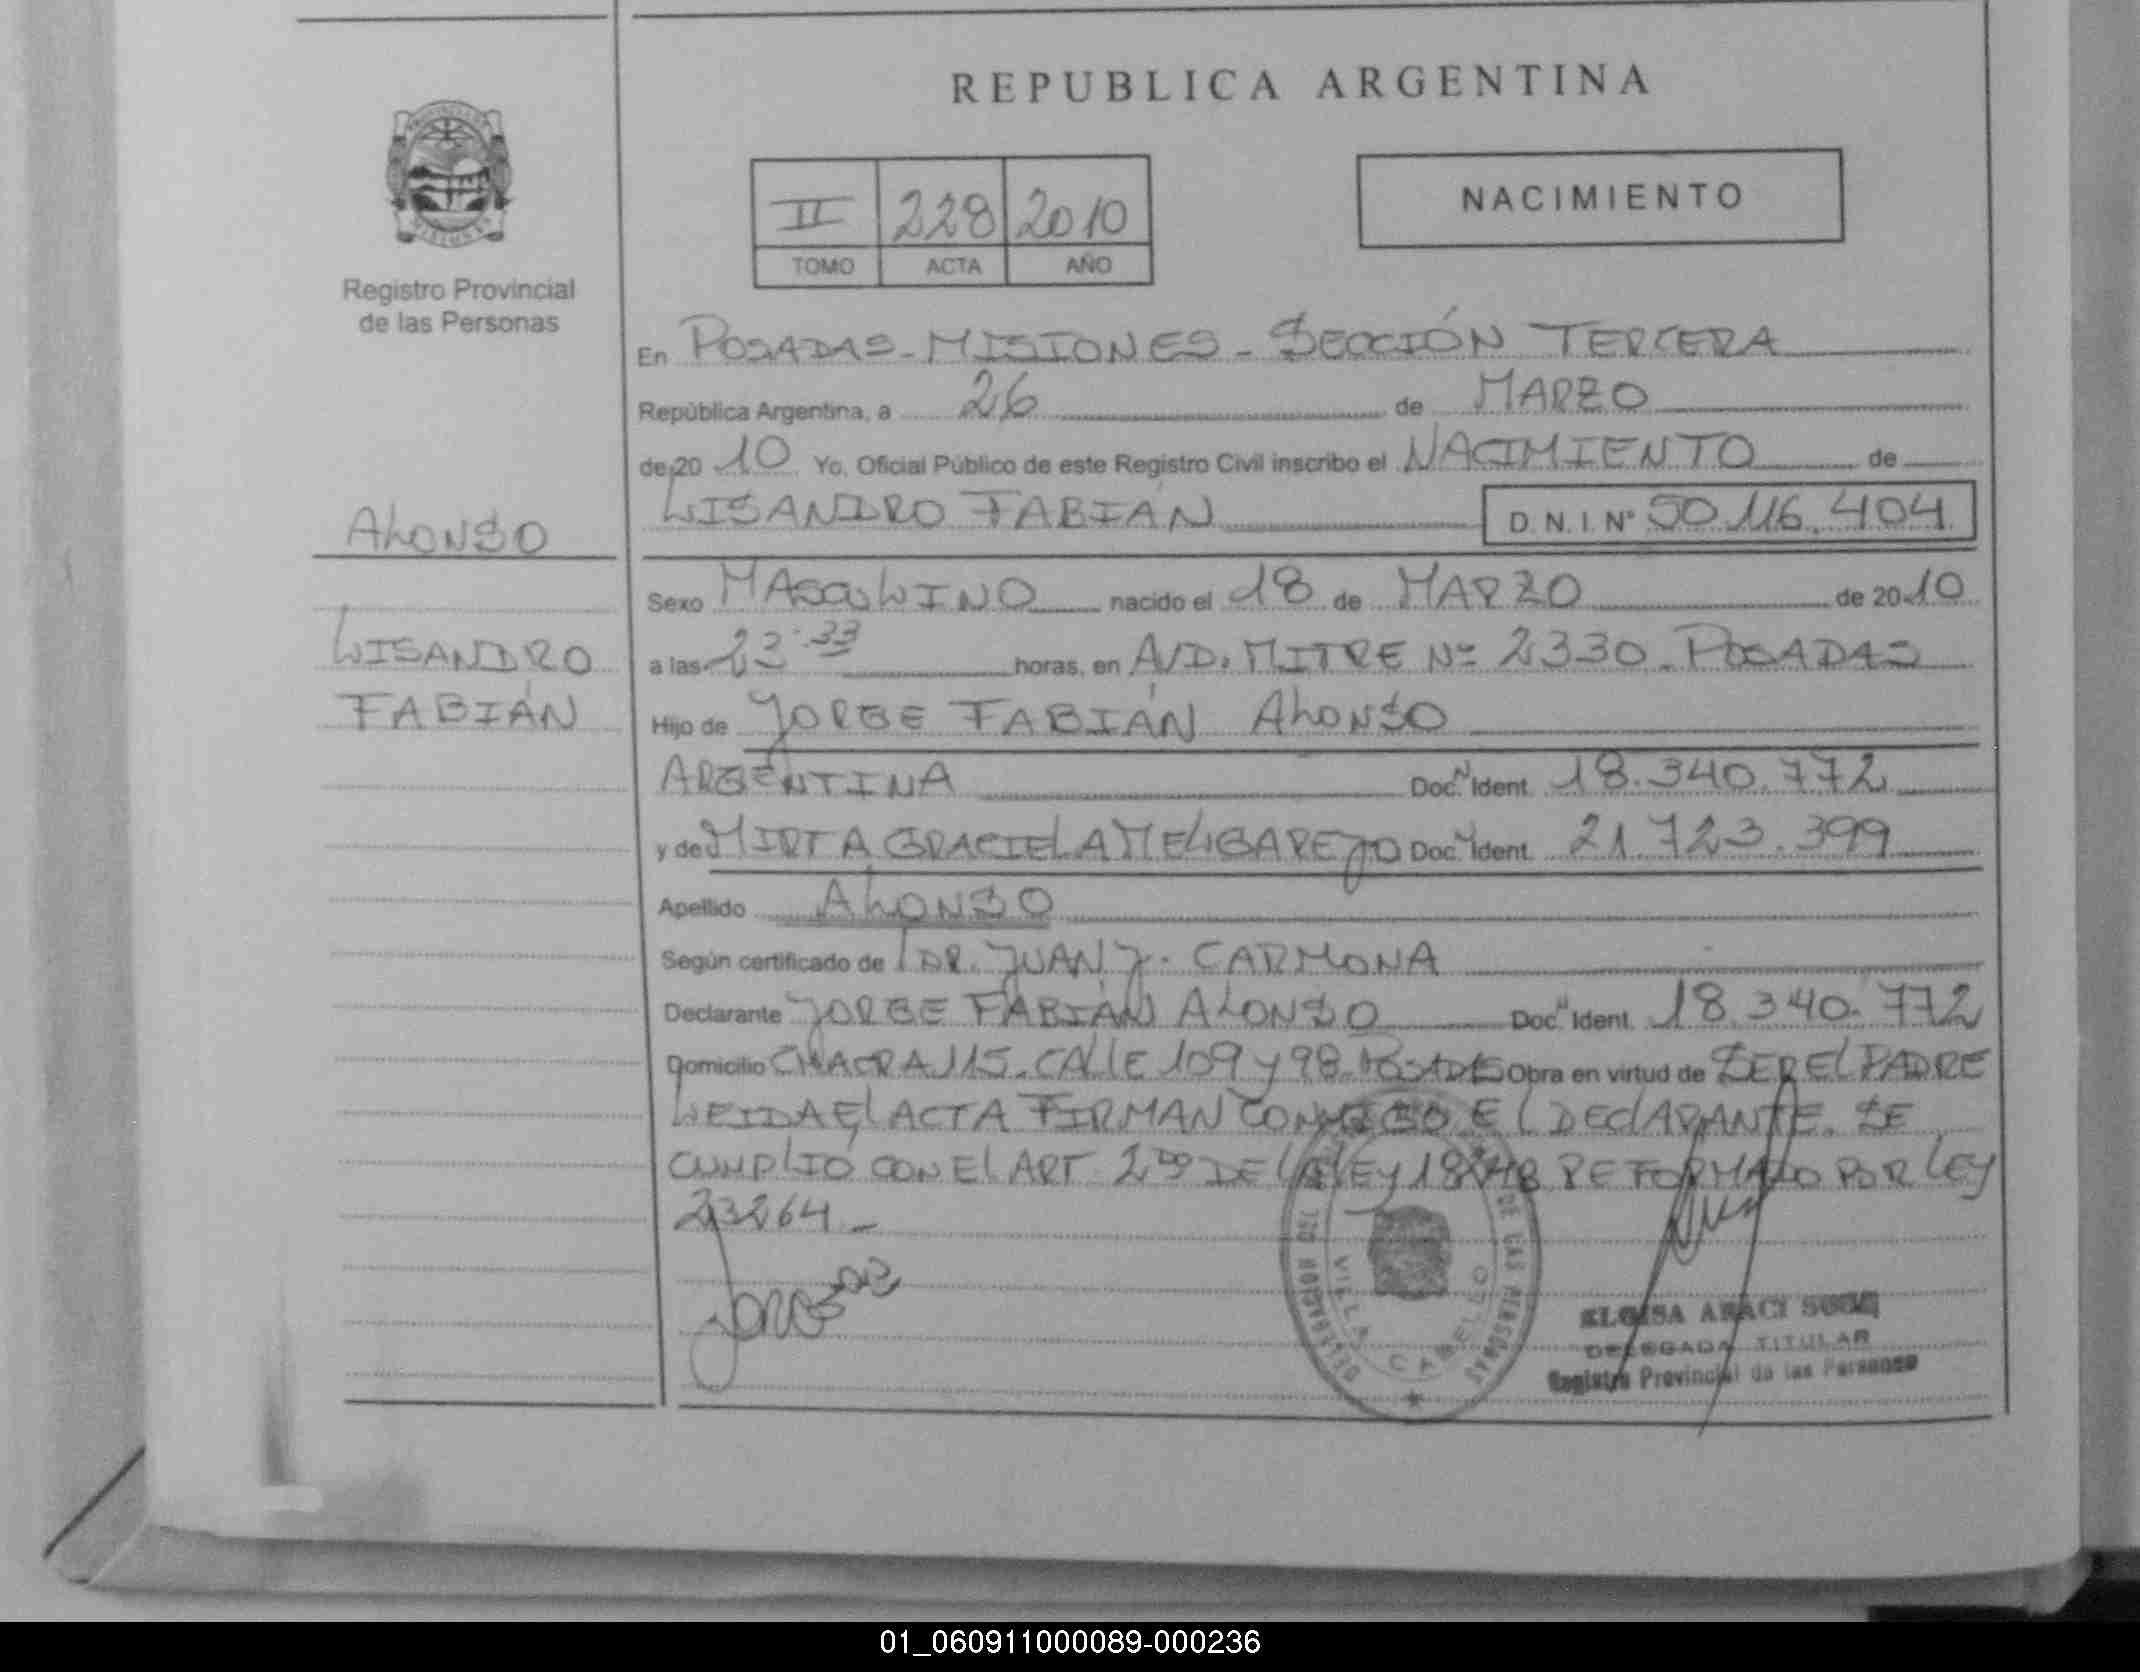 REPUBLICA ARGENTINA
NACIMIENTO
II 228 2010
TOMO ACTA AÑO
Registro Provincial
de las Personas
En POSADAS-MISIONES-SECCIÓN TERCERA
República Argentina, a 26 de MARZO
de 20 10 Yo, Oficial Público de este Registro Civil inscribo el NACIMIENTO de
LISANDRO FABIÁN D.N.I. Nº 50.116.404
ALONSO
LISANDRO
FABIÁN
Sexo MASCULINO nacido el 18 de MARZO de 2010
a las 23:33 horas, en AVD. MITRE Nº 2330. POSADAS
Hijo de JORGE FABIÁN ALONSO
ARGENTINA Doc. N Ident. 18.340.772
y de MIRTA GRACIELA MELGAREJO Doc. N Ident. 21.723.399
Apellido ALONSO
Según certificado de DR. JUAN J. CARMONA
Declarante JORGE FABIÁN ALONSO Doc. N Ident. 18.340.772
Domicilio CHACRA 115. CALLE 109 y 98. POSADAS Obra en virtud de SER EL PADRE
LEIDA EL ACTA FIRMAN CONMIGO EL DECLARANTE. SE
CUMPLIÓ CON EL ART 2DO DE LA LEY 18248 REFORMADO POR LEY
23264._
DELEGACION DEL DE LAS PERSONAS
VILLA CABELLO
ELOISA ARACI
DELEGADA TITULAR
Registro Provincial de las Personas
01_060911000089-000236